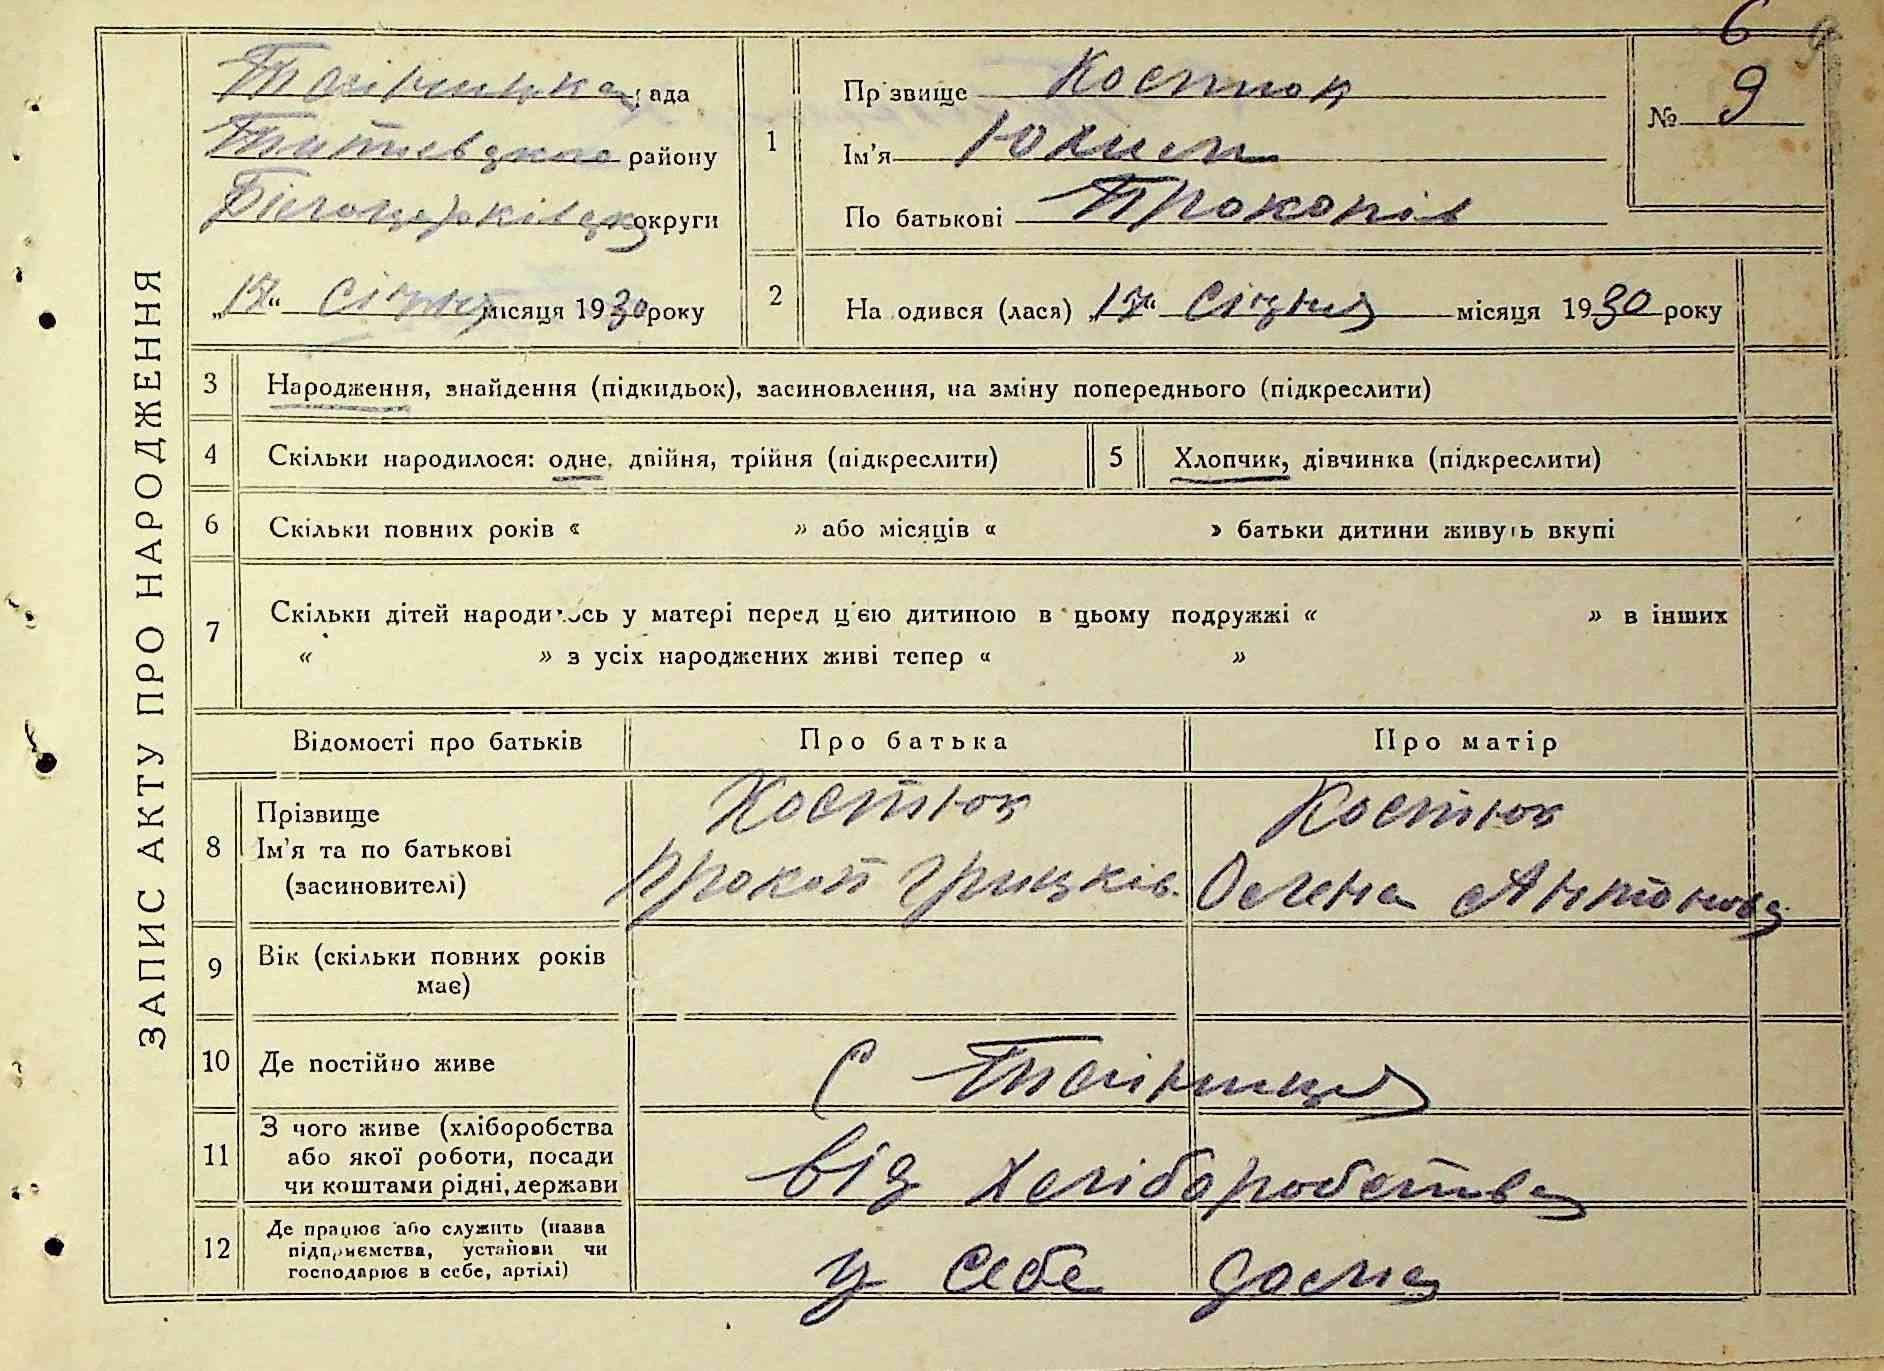 6
9
ЗАПИС АКТУ ПРО НАРОДЖЕННЯ
рада
району
Білоцерківська округи
"17" Січня місяця 1930 року
1
Прізвище Костюк
Ім'я Юхим
По батькові Прокопів
№ 9
2
Народився (лася) "17" Січня місяця 1930 року
3 Народження, знайдення (підкидьок), засиновлення, на зміну попереднього (підкреслити)
4 Скільки народилося: одне, двійня, трійня (підкреслити)
5 Хлопчик, дівчинка (підкреслити)
6 Скільки повних років « » або місяців « » батьки дитини живуть вкупі
7 Скільки дітей народилось у матері перед цією дитиною в цьому подружжі « » в інших
« » з усіх народжених живі тепер « »
Відомості про батьків
Про батька
Про матір
8
Прізвище
Ім'я та по батькові
(засиновителі)
Костюк
Прокоп Грицків.
Костюк
Олена Антонова
9 Вік (скільки повних років
має)
10 Де постійно живе
С Тайниця
11
З чого живе (хліборобства
або якої роботи, посади
чи коштами рідні, держави
від хліборобства
12
Де працює або служить (назва
підприємства, установи чи
господарює в себе, артілі)
у себе дома